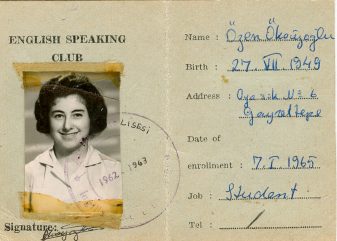 ENGLISH SPEAKING
CLUB
LISESİ
1962-1963
Signature:
Name : Özen Öküzoğlu
Birth : 27. VII. 1949
Address : No: 6
Gayrettepe
Date of
enrollment : 7. I. 1965
Job : Student
Tel : /